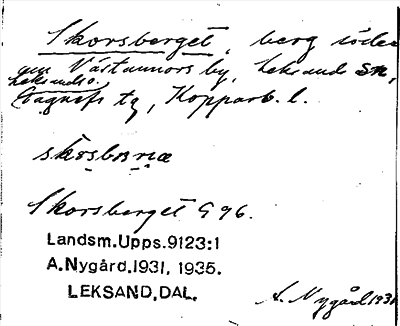 Skorsberget, berg söder
om Västannors by, Leksands sn,
Leksands o.
Gagnefs tg, Kopparb. l.
skɷsbɷrıæ
Skorsberget G 96.
Landsm.Upps.9123:1
A.Nygård.1931, 1935.
LEKSAND,DAL.
A. Nygård 1931